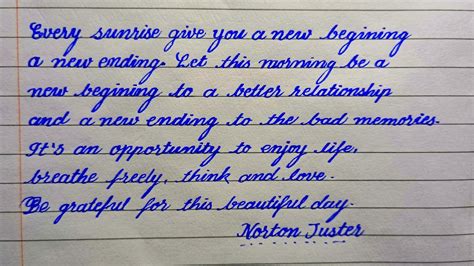 Every sunrise give you a new begining
a new ending. Let this morning be a
new begining to a better relationship
and a new ending to the bad memories.
It's an opportunity to enjoy life,
breathe freely, think and love.
Be grateful for this beautiful day.
Norton Juster